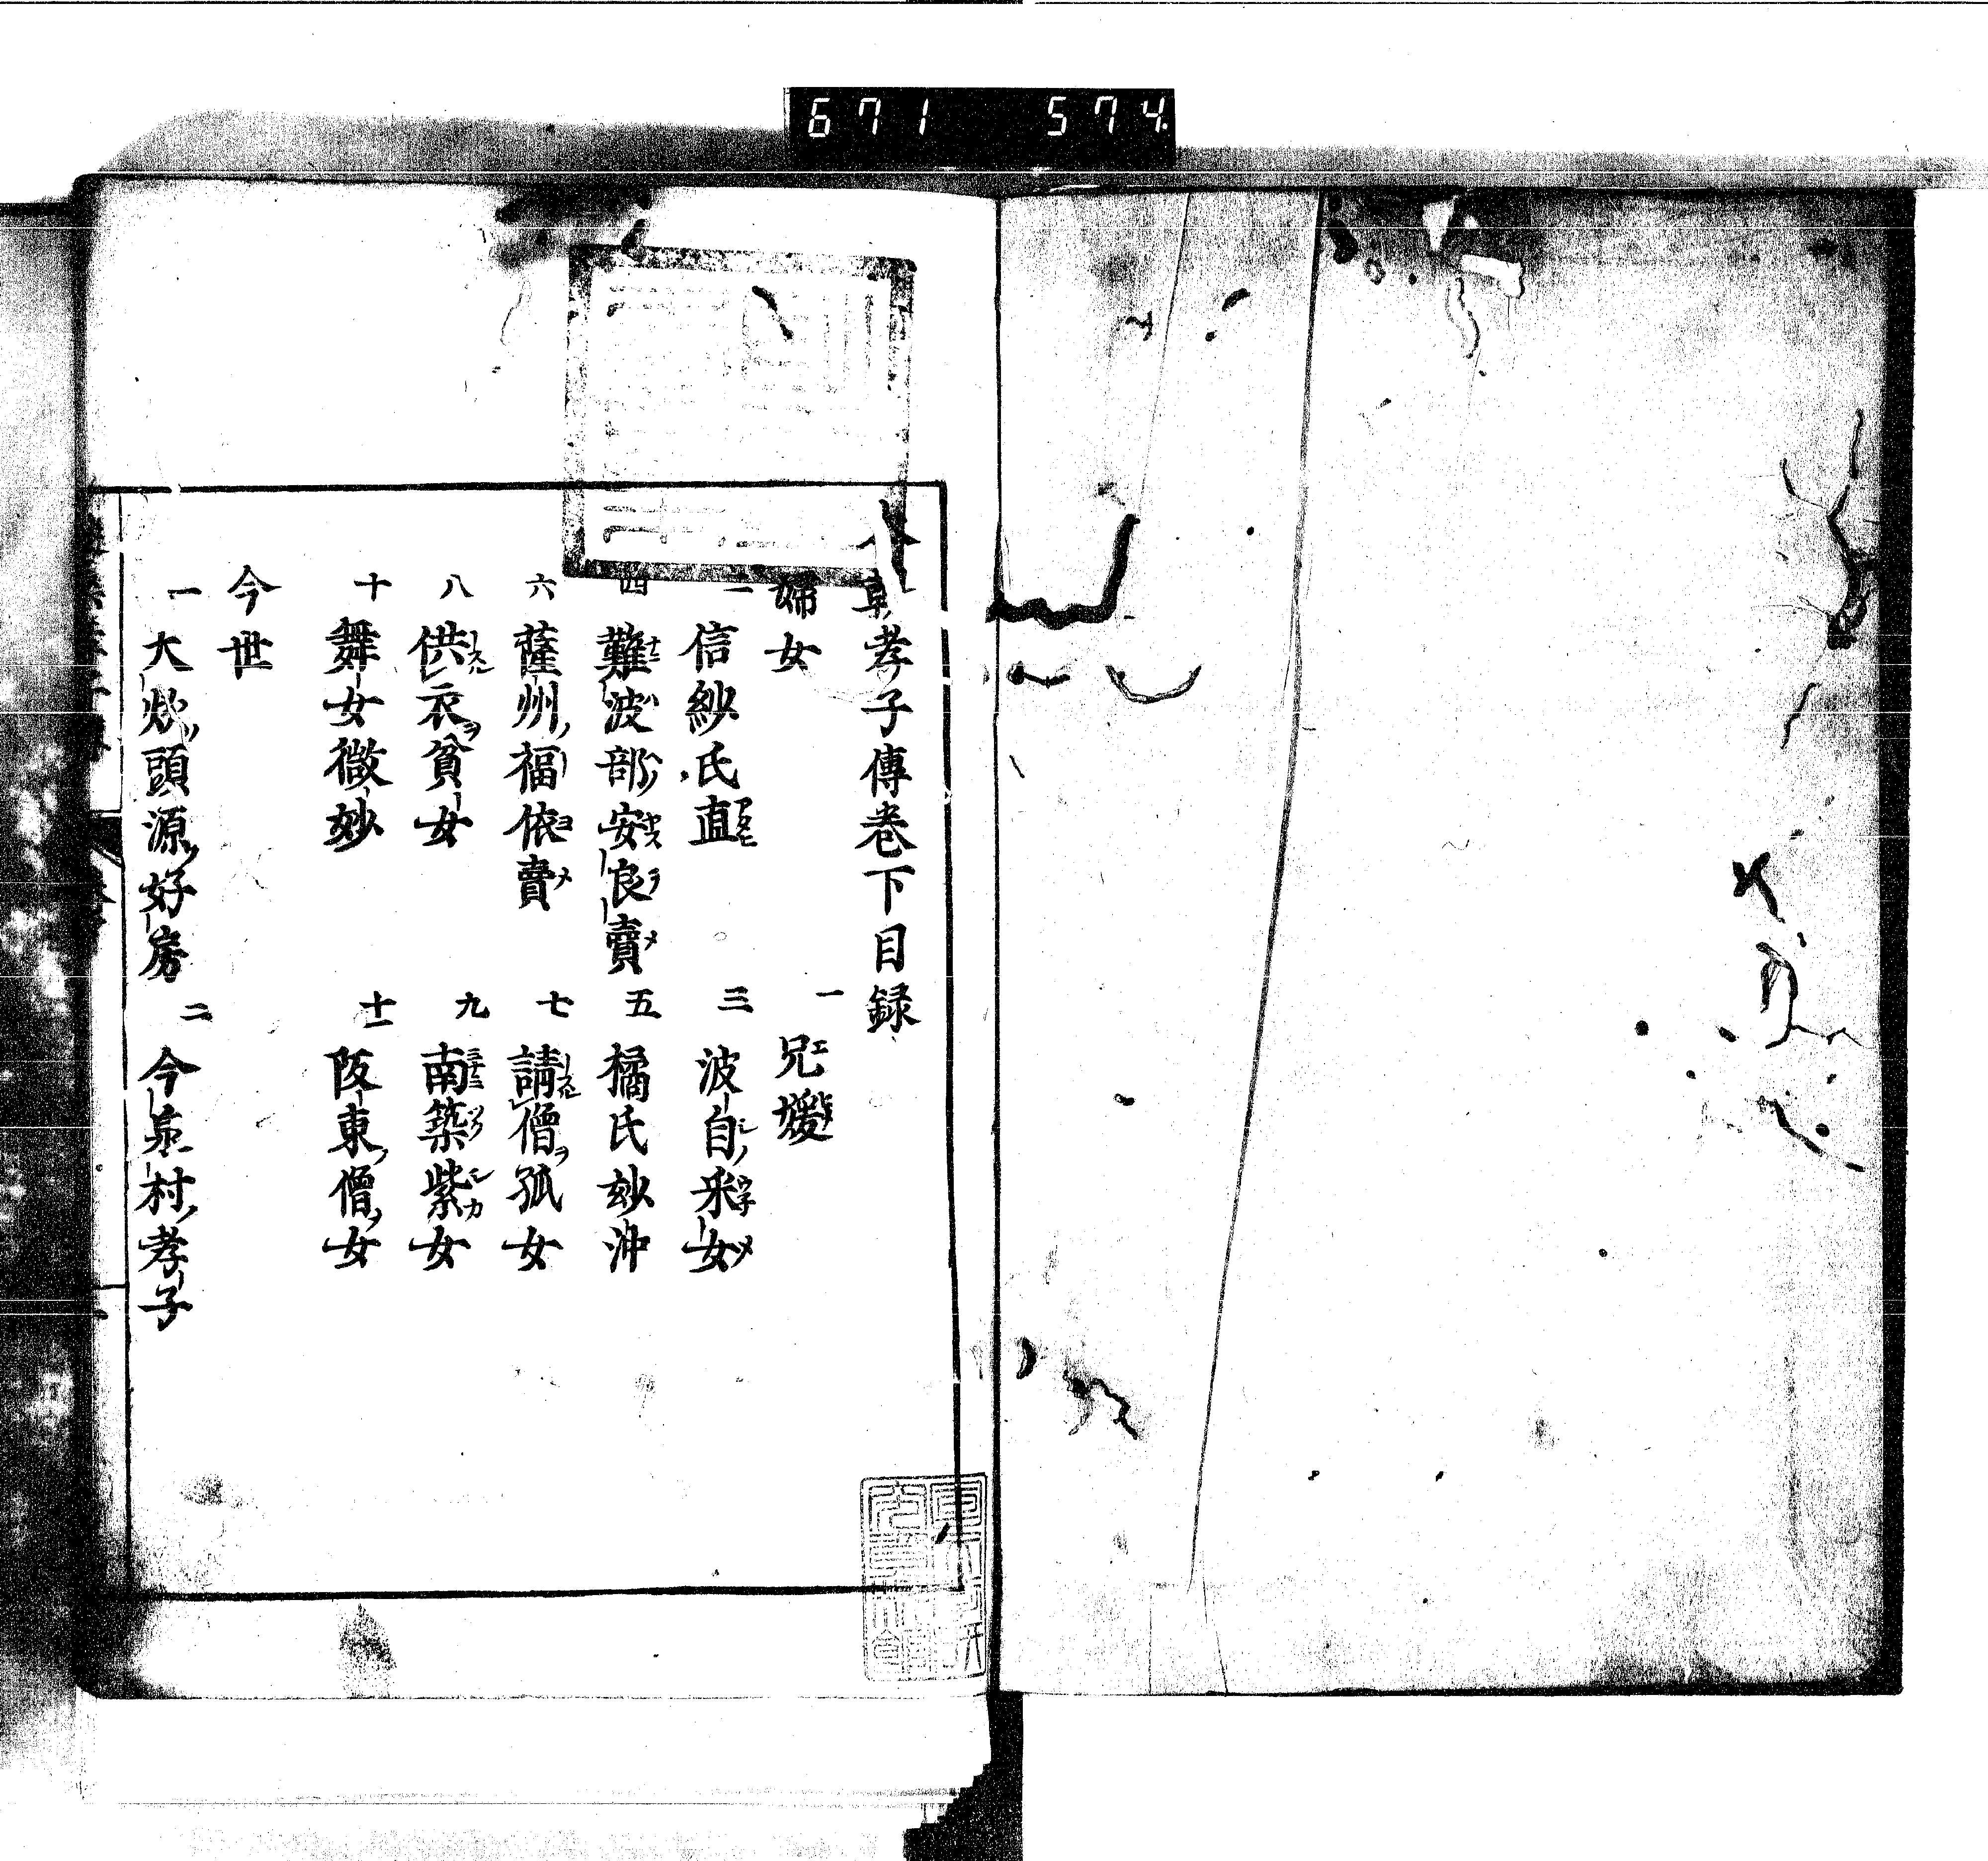 671 574
本朝孝子傳卷下目録
婦女 一 兄媛
二 信紗氏直 三 波自采女
四 難波部安良賣 五 橘氏妙沖
六 薩州福依賣 七 請僧孤女
八 供衣貧女 九 南築紫女
十 舞女微妙 十一 阪東僧女
今世
一 大炊頭源好房 二 今泉村孝子